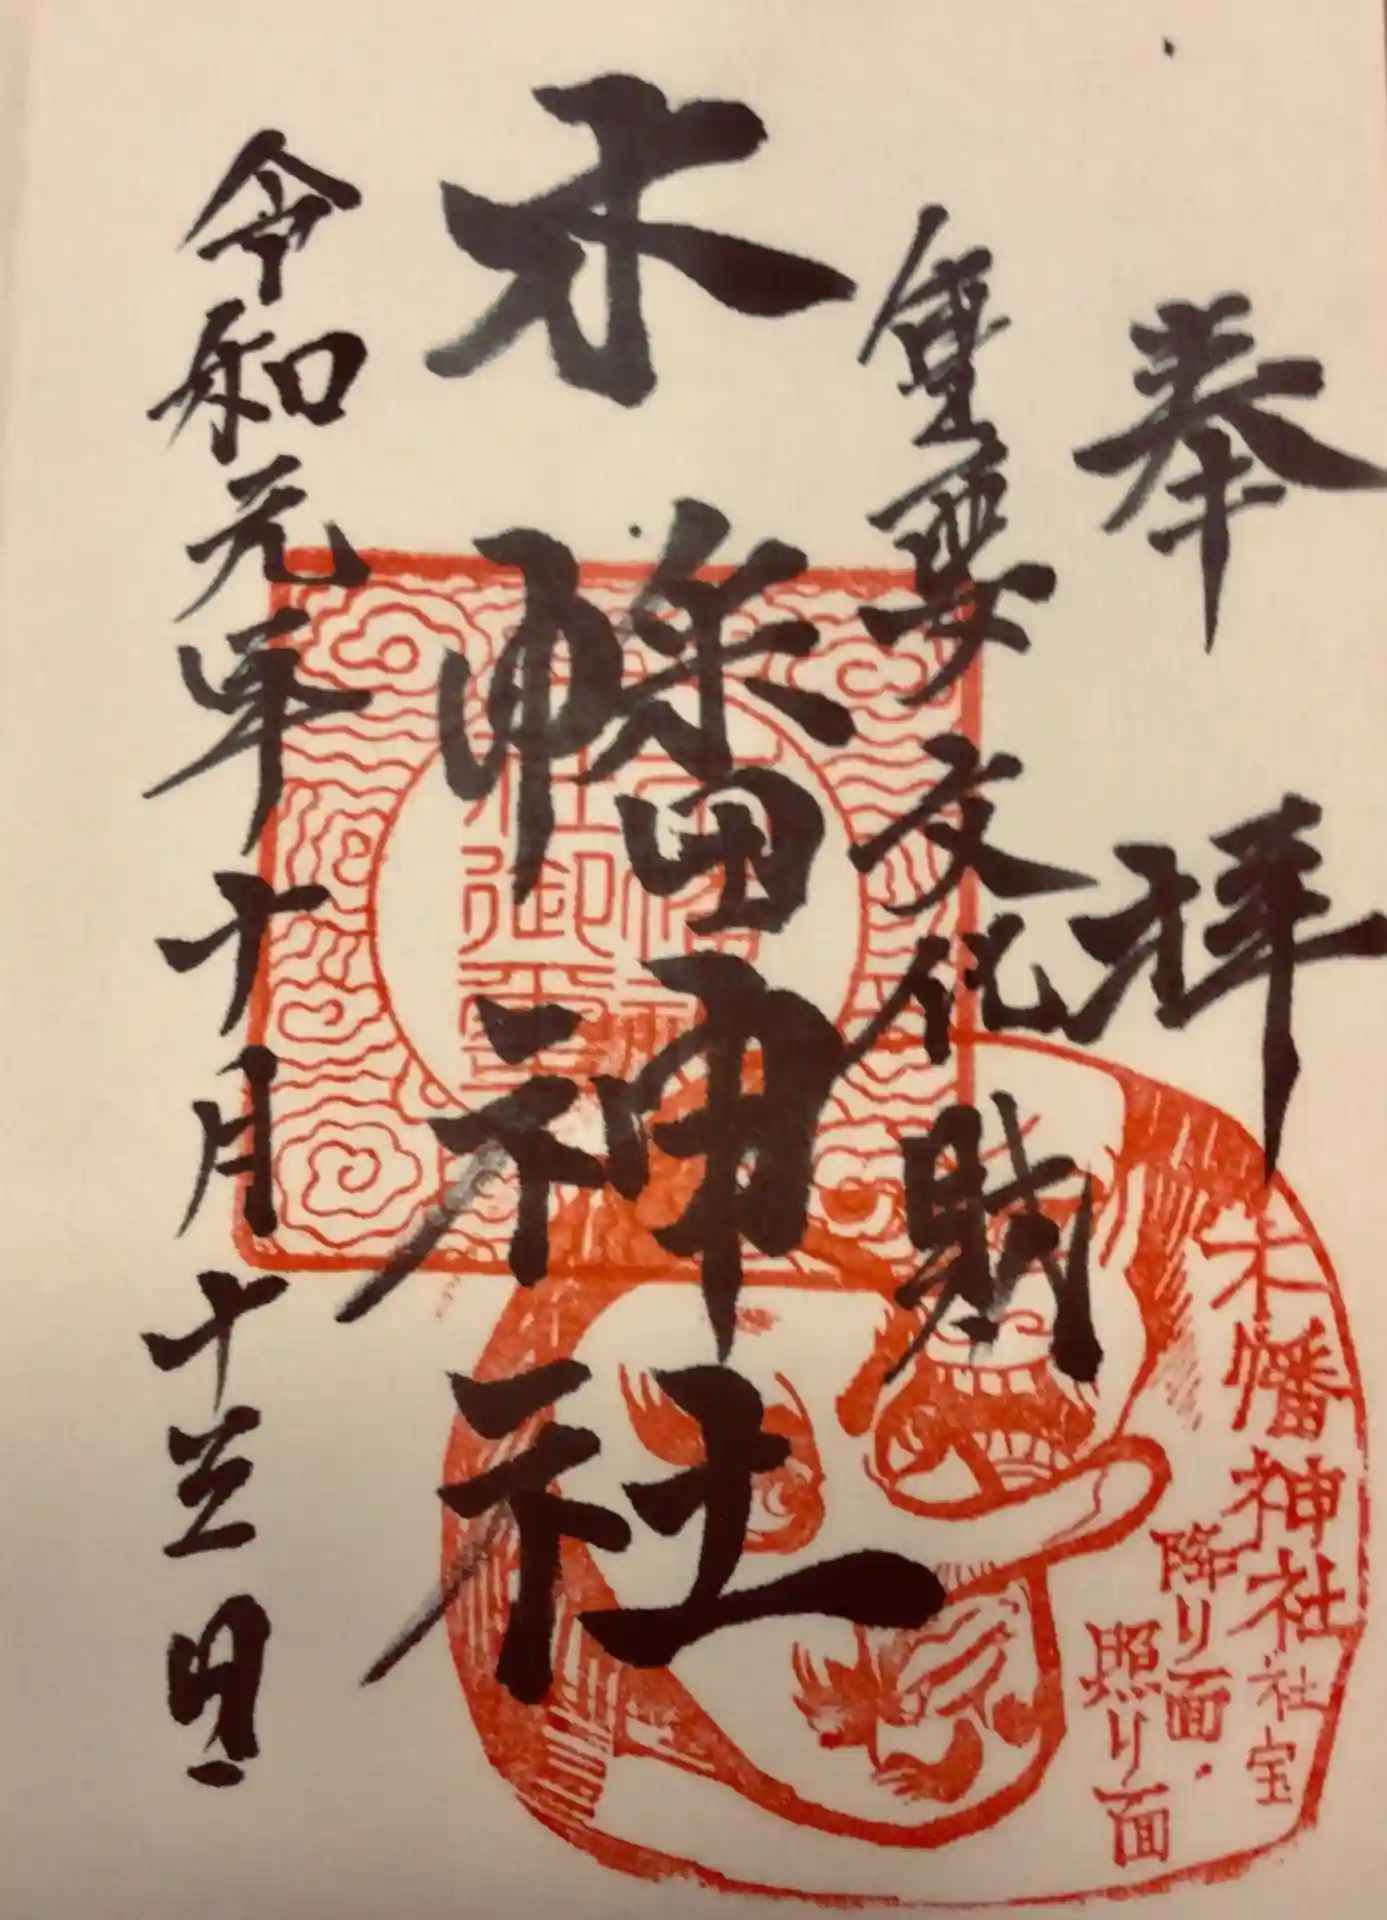 奉拝
重要文化財
木幡神社
令和元年十月十三日
木幡神社社宝
降り面・
照り面